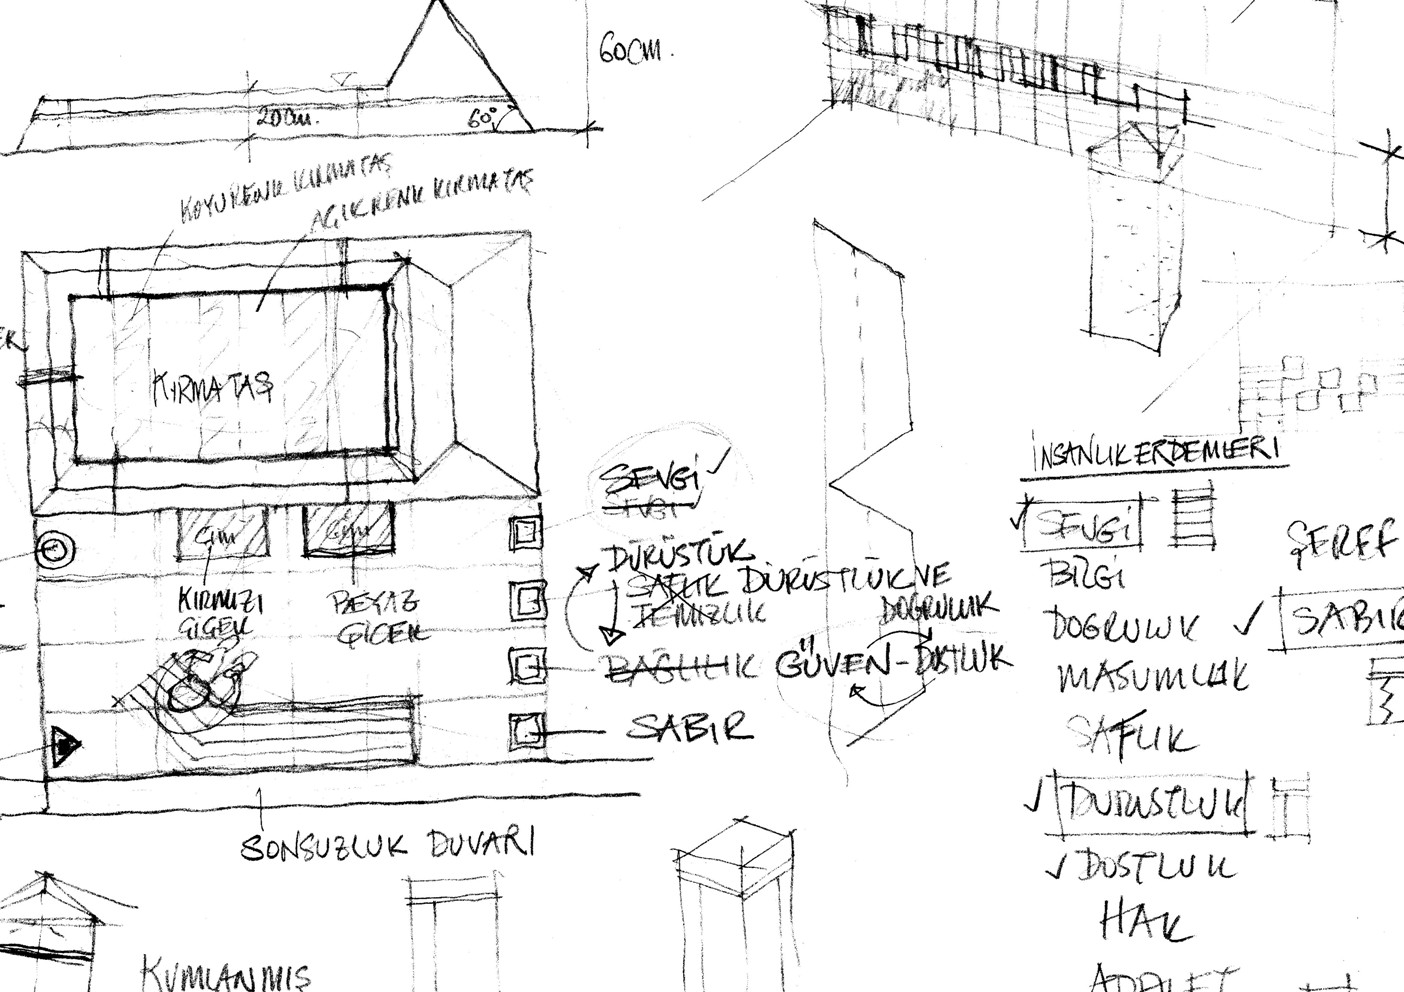 60CM.
20cm.
60°
KOYU RENK KIRMATAŞ
AÇIK RENK KIRMATAŞ
KIRMATAŞ
ÇİM
ÇİM
KIRMIZI
ÇİÇEK
BEYAZ
ÇİÇEK
SONSUZLUK DUVARI
KUMLANMIŞ
SEVGİ
SEVGİ
DÜRÜSTÜK
SAFLIK DÜRÜSTLÜK VE
TEMİZLİK DOĞRULUK
BAĞLILIK GÜVEN-DOSTLUK
SABIR
İNSANLIK ERDEMLERİ
SEVGİ
BİLGİ
DOGRULUK
MASUMLUK
SAFLIK
DÜRÜSTLUK
DOSTLUK
HAK
ADALET
ŞEREF
SABIR